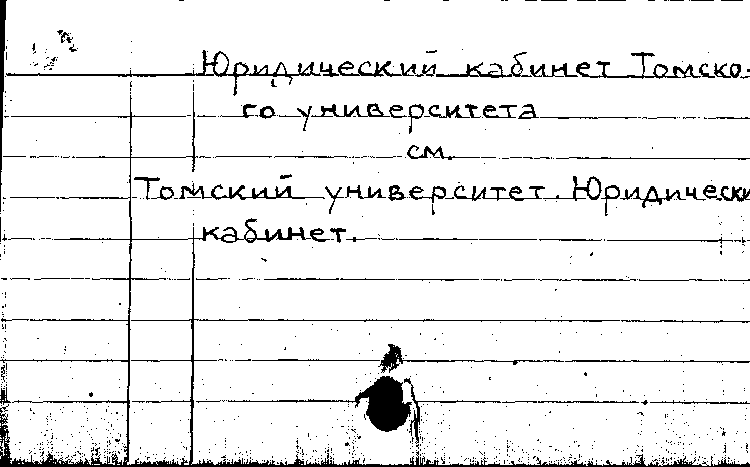 Юридический кабинет Томско-
го университета
см.
Томский университет. Юридически
кабинет.